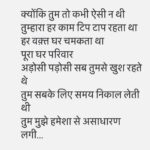 क्योंकि तुम तो कभी ऐसी न थी
तुम्हारा हर काम टिप टाप रहता था
हर वक़्त घर चमकता था
पूरा घर परिवार
अड़ोसी पड़ोसी सब तुमसे खुश रहते
थे
तुम सबके लिए समय निकाल लेती
थी
तुम मुझे हमेशा से असाधारण
लगी...